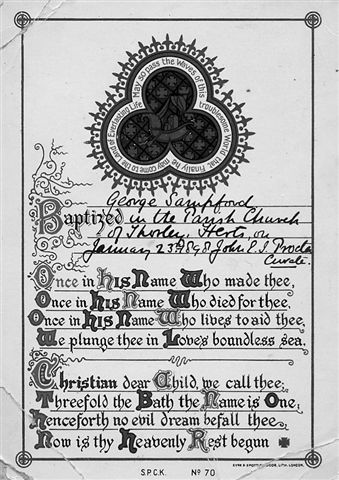 May so pass the Waves of this troublesome World that finally he may come to the Land of Everlasting Life
George Sampford
Baptized in the Parish Church
of Thorley, Herts, on
January 23rd 1898 John P. I. Procter
Curate.
Once in HIS Name Who made thee,
Once in HIS Name Who died for thee,
Once in HIS Name Who lives to aid thee,
We plunge thee in Love's boundless sea.
Christian dear Child, we call thee;
Threefold the Bath the Name is One;
Henceforth no evil dream befall thee,
Now is thy Heavenly Rest begun
EYRE & SPOTTISWOODE, LITH. LONDON.
S.P.C.K. No 70